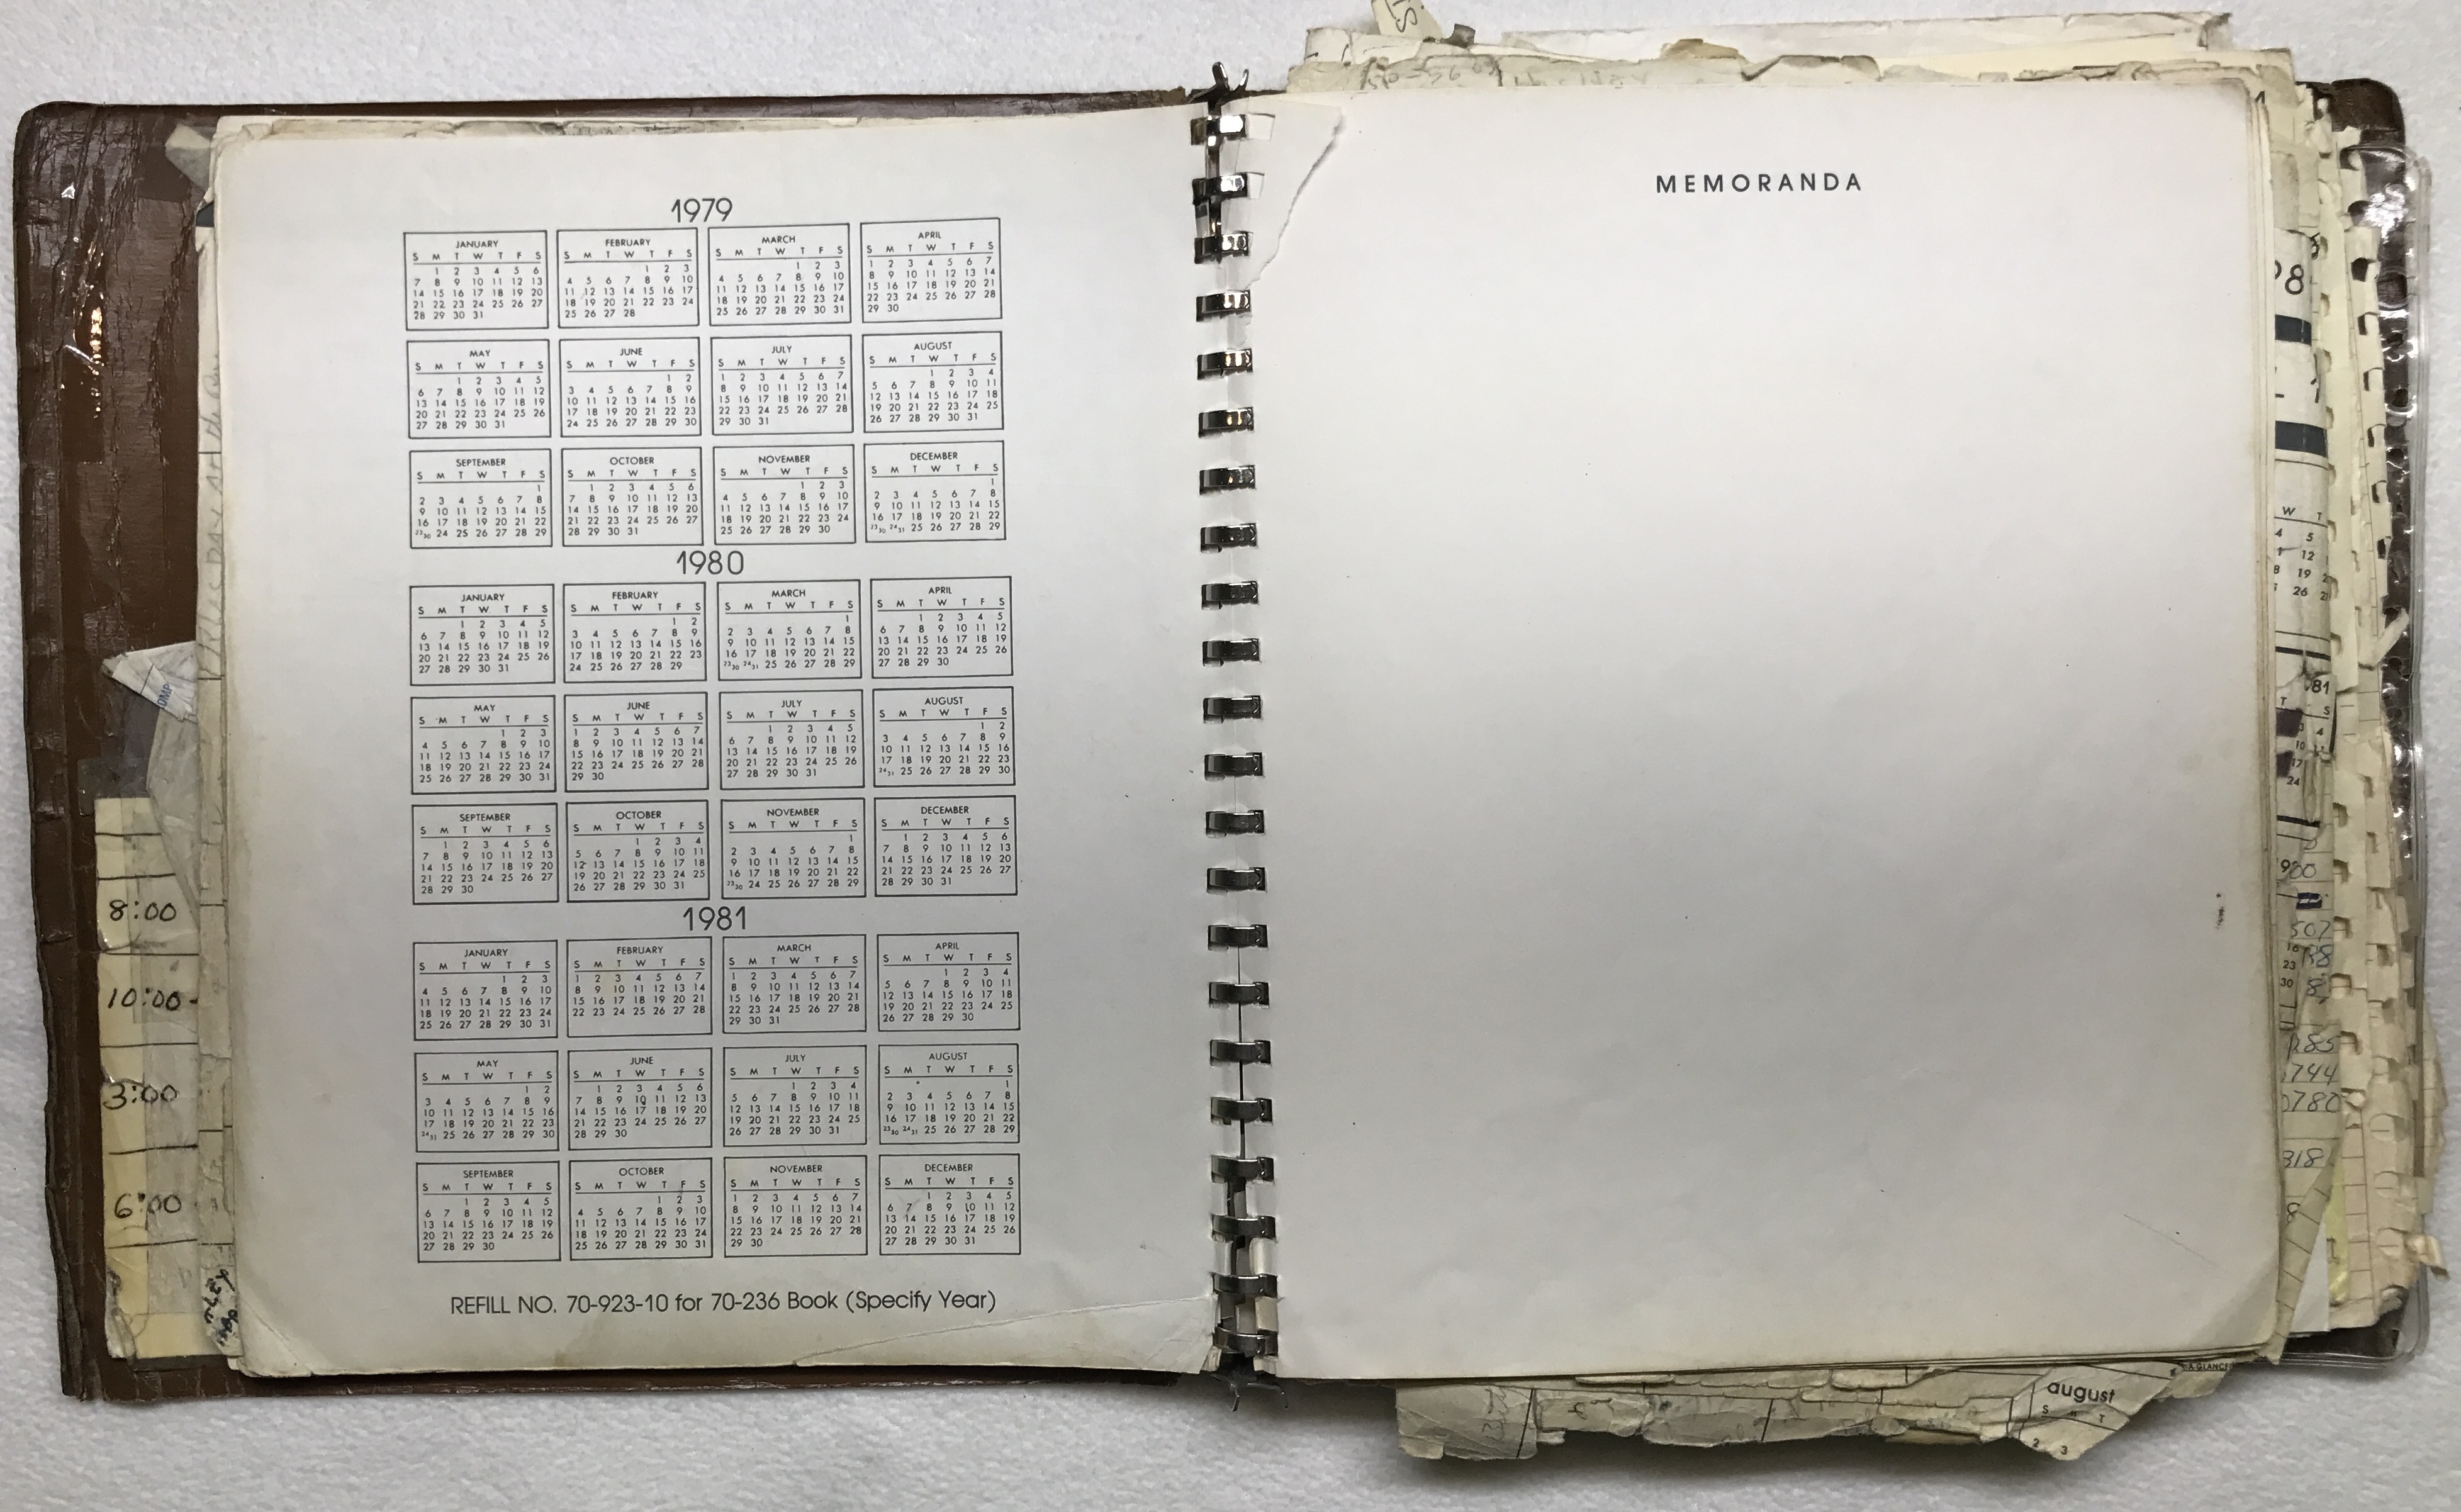 1979
JANUARY
S M T W T F S
1 2 3 4 5 6
7 8 9 10 11 12 13
14 15 16 17 18 19 20
21 22 23 24 25 26 27
28 29 30 31
FEBRUARY
S M T W T F S
1 2 3
4 5 6 7 8 9 10
11 12 13 14 15 16 17
18 19 20 21 22 23 24
25 26 27 28
MARCH
S M T W T F S
1 2 3
4 5 6 7 8 9 10
11 12 13 14 15 16 17
18 19 20 21 22 23 24
25 26 27 28 29 30 31
APRIL
S M T W T F S
1 2 3 4 5 6 7
8 9 10 11 12 13 14
15 16 17 18 19 20 21
22 23 24 25 26 27 28
29 30
MAY
S M T W T F S
1 2 3 4 5
6 7 8 9 10 11 12
13 14 15 16 17 18 19
20 21 22 23 24 25 26
27 28 29 30 31
JUNE
S M T W T F S
1 2
3 4 5 6 7 8 9
10 11 12 13 14 15 16
17 18 19 20 21 22 23
24 25 26 27 28 29 30
JULY
S M T W T F S
1 2 3 4 5 6 7
8 9 10 11 12 13 14
15 16 17 18 19 20 21
22 23 24 25 26 27 28
29 30 31
AUGUST
S M T W T F S
1 2 3 4
5 6 7 8 9 10 11
12 13 14 15 16 17 18
19 20 21 22 23 24 25
26 27 28 29 30 31
SEPTEMBER
S M T W T F S
1
2 3 4 5 6 7 8
9 10 11 12 13 14 15
16 17 18 19 20 21 22
23 30 24 25 26 27 28 29
OCTOBER
S M T W T F S
1 2 3 4 5 6
7 8 9 10 11 12 13
14 15 16 17 18 19 20
21 22 23 24 25 26 27
28 29 30 31
NOVEMBER
S M T W T F S
1 2 3
4 5 6 7 8 9 10
11 12 13 14 15 16 17
18 19 20 21 22 23 24
25 26 27 28 29 30
DECEMBER
S M T W T F S
1
2 3 4 5 6 7 8
9 10 11 12 13 14 15
16 17 18 19 20 21 22
23 30 24 31 25 26 27 28 29
1980
JANUARY
S M T W T F S
1 2 3 4 5
6 7 8 9 10 11 12
13 14 15 16 17 18 19
20 21 22 23 24 25 26
27 28 29 30 31
FEBRUARY
S M T W T F S
1 2
3 4 5 6 7 8 9
10 11 12 13 14 15 16
17 18 19 20 21 22 23
24 25 26 27 28 29
MARCH
S M T W T F S
1
2 3 4 5 6 7 8
9 10 11 12 13 14 15
16 17 18 19 20 21 22
23 30 24 31 25 26 27 28 29
APRIL
S M T W T F S
1 2 3 4 5
6 7 8 9 10 11 12
13 14 15 16 17 18 19
20 21 22 23 24 25 26
27 28 29 30
MAY
S M T W T F S
1 2 3
4 5 6 7 8 9 10
11 12 13 14 15 16 17
18 19 20 21 22 23 24
25 26 27 28 29 30 31
JUNE
S M T W T F S
1 2 3 4 5 6 7
8 9 10 11 12 13 14
15 16 17 18 19 20 21
22 23 24 25 26 27 28
29 30
JULY
S M T W T F S
1 2 3 4 5
6 7 8 9 10 11 12
13 14 15 16 17 18 19
20 21 22 23 24 25 26
27 28 29 30 31
AUGUST
S M T W T F S
1 2
3 4 5 6 7 8 9
10 11 12 13 14 15 16
17 18 19 20 21 22 23
24 31 25 26 27 28 29 30
SEPTEMBER
S M T W T F S
1 2 3 4 5 6
7 8 9 10 11 12 13
14 15 16 17 18 19 20
21 22 23 24 25 26 27
28 29 30
OCTOBER
S M T W T F S
1 2 3 4
5 6 7 8 9 10 11
12 13 14 15 16 17 18
19 20 21 22 23 24 25
26 27 28 29 30 31
NOVEMBER
S M T W T F S
1
2 3 4 5 6 7 8
9 10 11 12 13 14 15
16 17 18 19 20 21 22
23 30 24 25 26 27 28 29
DECEMBER
S M T W T F S
1 2 3 4 5 6
7 8 9 10 11 12 13
14 15 16 17 18 19 20
21 22 23 24 25 26 27
28 29 30 31
1981
JANUARY
S M T W T F S
1 2 3
4 5 6 7 8 9 10
11 12 13 14 15 16 17
18 19 20 21 22 23 24
25 26 27 28 29 30 31
FEBRUARY
S M T W T F S
1 2 3 4 5 6 7
8 9 10 11 12 13 14
15 16 17 18 19 20 21
22 23 24 25 26 27 28
MARCH
S M T W T F S
1 2 3 4 5 6 7
8 9 10 11 12 13 14
15 16 17 18 19 20 21
22 23 24 25 26 27 28
29 30 31
APRIL
S M T W T F S
1 2 3 4
5 6 7 8 9 10 11
12 13 14 15 16 17 18
19 20 21 22 23 24 25
26 27 28 29 30
MAY
S M T W T F S
1 2
3 4 5 6 7 8 9
10 11 12 13 14 15 16
17 18 19 20 21 22 23
24 31 25 26 27 28 29 30
JUNE
S M T W T F S
1 2 3 4 5 6
7 8 9 10 11 12 13
14 15 16 17 18 19 20
21 22 23 24 25 26 27
28 29 30
JULY
S M T W T F S
1 2 3 4
5 6 7 8 9 10 11
12 13 14 15 16 17 18
19 20 21 22 23 24 25
26 27 28 29 30 31
AUGUST
S M T W T F S
1
2 3 4 5 6 7 8
9 10 11 12 13 14 15
16 17 18 19 20 21 22
23 30 24 31 25 26 27 28 29
SEPTEMBER
S M T W T F S
1 2 3 4 5
6 7 8 9 10 11 12
13 14 15 16 17 18 19
20 21 22 23 24 25 26
27 28 29 30
OCTOBER
S M T W T F S
1 2 3
4 5 6 7 8 9 10
11 12 13 14 15 16 17
18 19 20 21 22 23 24
25 26 27 28 29 30 31
NOVEMBER
S M T W T F S
1 2 3 4 5 6 7
8 9 10 11 12 13 14
15 16 17 18 19 20 21
22 23 24 25 26 27 28
29 30
DECEMBER
S M T W T F S
1 2 3 4 5
6 7 8 9 10 11 12
13 14 15 16 17 18 19
20 21 22 23 24 25 26
27 28 29 30 31
REFILL NO. 70-923-10 for 70-236 Book (Specify Year)
8:00
10:00
3:00
6:00
MEMORANDA
W T
4 5
12
19
26
81
507
744
0780
318
august
S M T
2 3